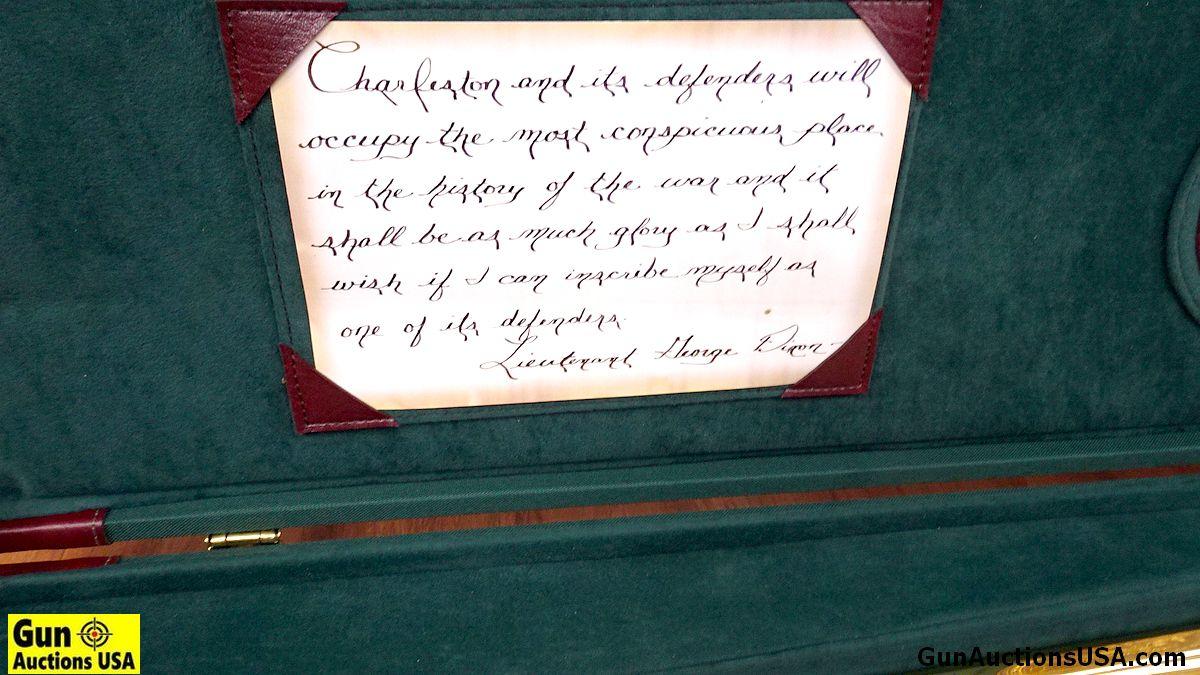 Charleston and its defenders will
occupy the most conspicuous place
in the history of the war and it
shall be as much glory as I shall
wish if I can inscribe myself as
one of its defenders.
Lieutenant George Dixon
Gun
Auctions USA
GunAuctionsUSA.com